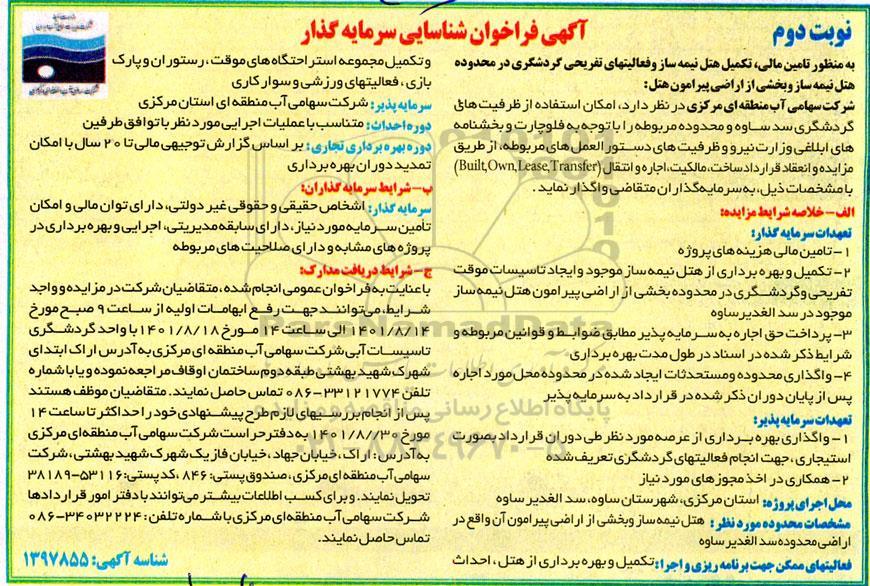 نوبت دوم
آگهی فراخوان شناسایی سرمایه گذار
به منظور تامین مالی، تکمیل هتل نیمه ساز وفعالیتهای تفریحی گردشگری در محدوده
هتل نیمه ساز وبخشی از اراضی پیرامون هتل:
شرکت سهامی آب منطقه ای مرکزی در نظر دارد، امکان استفاده از ظرفیت های
گردشگری سد ساوه و محدوده مربوطه را با توجه به فلوچارت و بخشنامه
های ابلاغی وزارت نیرو و ظرفیت های دستور العمل های مربوطه، از طریق
مزایده و انعقاد قرارداد ساخت، مالکیت، اجاره و انتقال (Built,Own,Lease,Transfer)
با مشخصات ذیل، به سرمایه گذاران متقاضی واگذار نماید.
الف- خلاصه شرایط مزایده:
تعهدات سرمایه گذار:
۱- تامین مالی هزینه های پروژه
۲- تکمیل و بهره برداری از هتل نیمه ساز موجود و ایجاد تاسیسات موقت
تفریحی وگردشگری در محدوده بخشی از اراضی پیرامون هتل نیمه ساز
موجود در سد الغدیر ساوه
۳- پرداخت حق اجاره به سرمایه پذیر مطابق ضوابط و قوانین مربوطه و
شرایط ذکر شده در اسناد در طول مدت بهره برداری
۴- واگذاری محدوده ومستحدثات ایجاد شده در محدوده محل مورد اجاره
پس از پایان دوران ذکر شده در قرارداد به سرمایه پذیر
تعهدات سرمایه پذیر:
۱- واگذاری بهره برداری از عرصه مورد نظر طی دوران قرارداد بصورت
استیجاری، جهت انجام فعالیتهای گردشگری تعریف شده
۲- همکاری در اخذ مجوزهای مورد نیاز
محل اجرای پروژه: استان مرکزی، شهرستان ساوه، سد الغدیر ساوه
مشخصات محدوده مورد نظر: هتل نیمه ساز وبخشی از اراضی پیرامون آن واقع در
اراضی محدوده سد الغدیر ساوه
فعالیتهای ممکن جهت برنامه ریزی و اجرا: تکمیل و بهره برداری از هتل، احداث
و تکمیل مجموعه استراحتگاه های موقت، رستوران و پارک
بازی، فعالیتهای ورزشی و سوارکاری
سرمایه پذیر: شرکت سهامی آب منطقه ای استان مرکزی
دوره احداث: متناسب با عملیات اجرایی مورد نظر با توافق طرفین
دوره بهره برداری تجاری: بر اساس گزارش توجیهی مالی تا ۲۰ سال با امکان
تمدید دوران بهره برداری
ب- شرایط سرمایه گذاران:
سرمایه گذار: اشخاص حقیقی و حقوقی غیر دولتی، دارای توان مالی و امکان
تأمین سرمایه مورد نیاز، دارای سابقه مدیریتی، اجرایی و بهره برداری در
پروژه های مشابه و دارای صلاحیت های مربوطه
ج- شرایط دریافت مدارک:
با عنایت به فراخوان عمومی انجام شده، متقاضیان شرکت در مزایده و واجد
شرایط، می توانند جهت رفع ابهامات اولیه از ساعت ۹ صبح مورخ
۱۴۰۱/۸/۱۴ الی ساعت ۱۴ مورخ ۱۴۰۱/۸/۱۸ با واحد گردشگری
تاسیسات آبی شرکت سهامی آب منطقه ای مرکزی به آدرس اراک ابتدای
شهرک شهید بهشتی طبقه دوم ساختمان اوقاف مراجعه نموده و یا با شماره
تلفن ۳۳۱۲۱۷۷۴-۰۸۶ تماس حاصل نمایند. متقاضیان موظف هستند
پس از انجام بررسیهای لازم طرح پیشنهادی خود را حداکثر تا ساعت ۱۴
مورخ ۱۴۰۱/۸/۳۰ به دفتر حراست شرکت سهامی آب منطقه ای مرکزی
به آدرس: اراک، خیابان جهاد، خیابان فاز یک شهرک شهید بهشتی، شرکت
سهامی آب منطقه ای مرکزی، صندوق پستی: ۸۴۶، کد پستی: ۵۳۱۱۶-۳۸۱۸۹
تحویل نمایند. و برای کسب اطلاعات بیشتر می توانند با دفتر امور قراردادها
شرکت سهامی آب منطقه ای مرکزی با شماره تلفن: ۳۴۰۳۲۲۲۴-۰۸۶
تماس حاصل نمایند.
شناسه آگهی: ۱۳۹۷۸۵۵